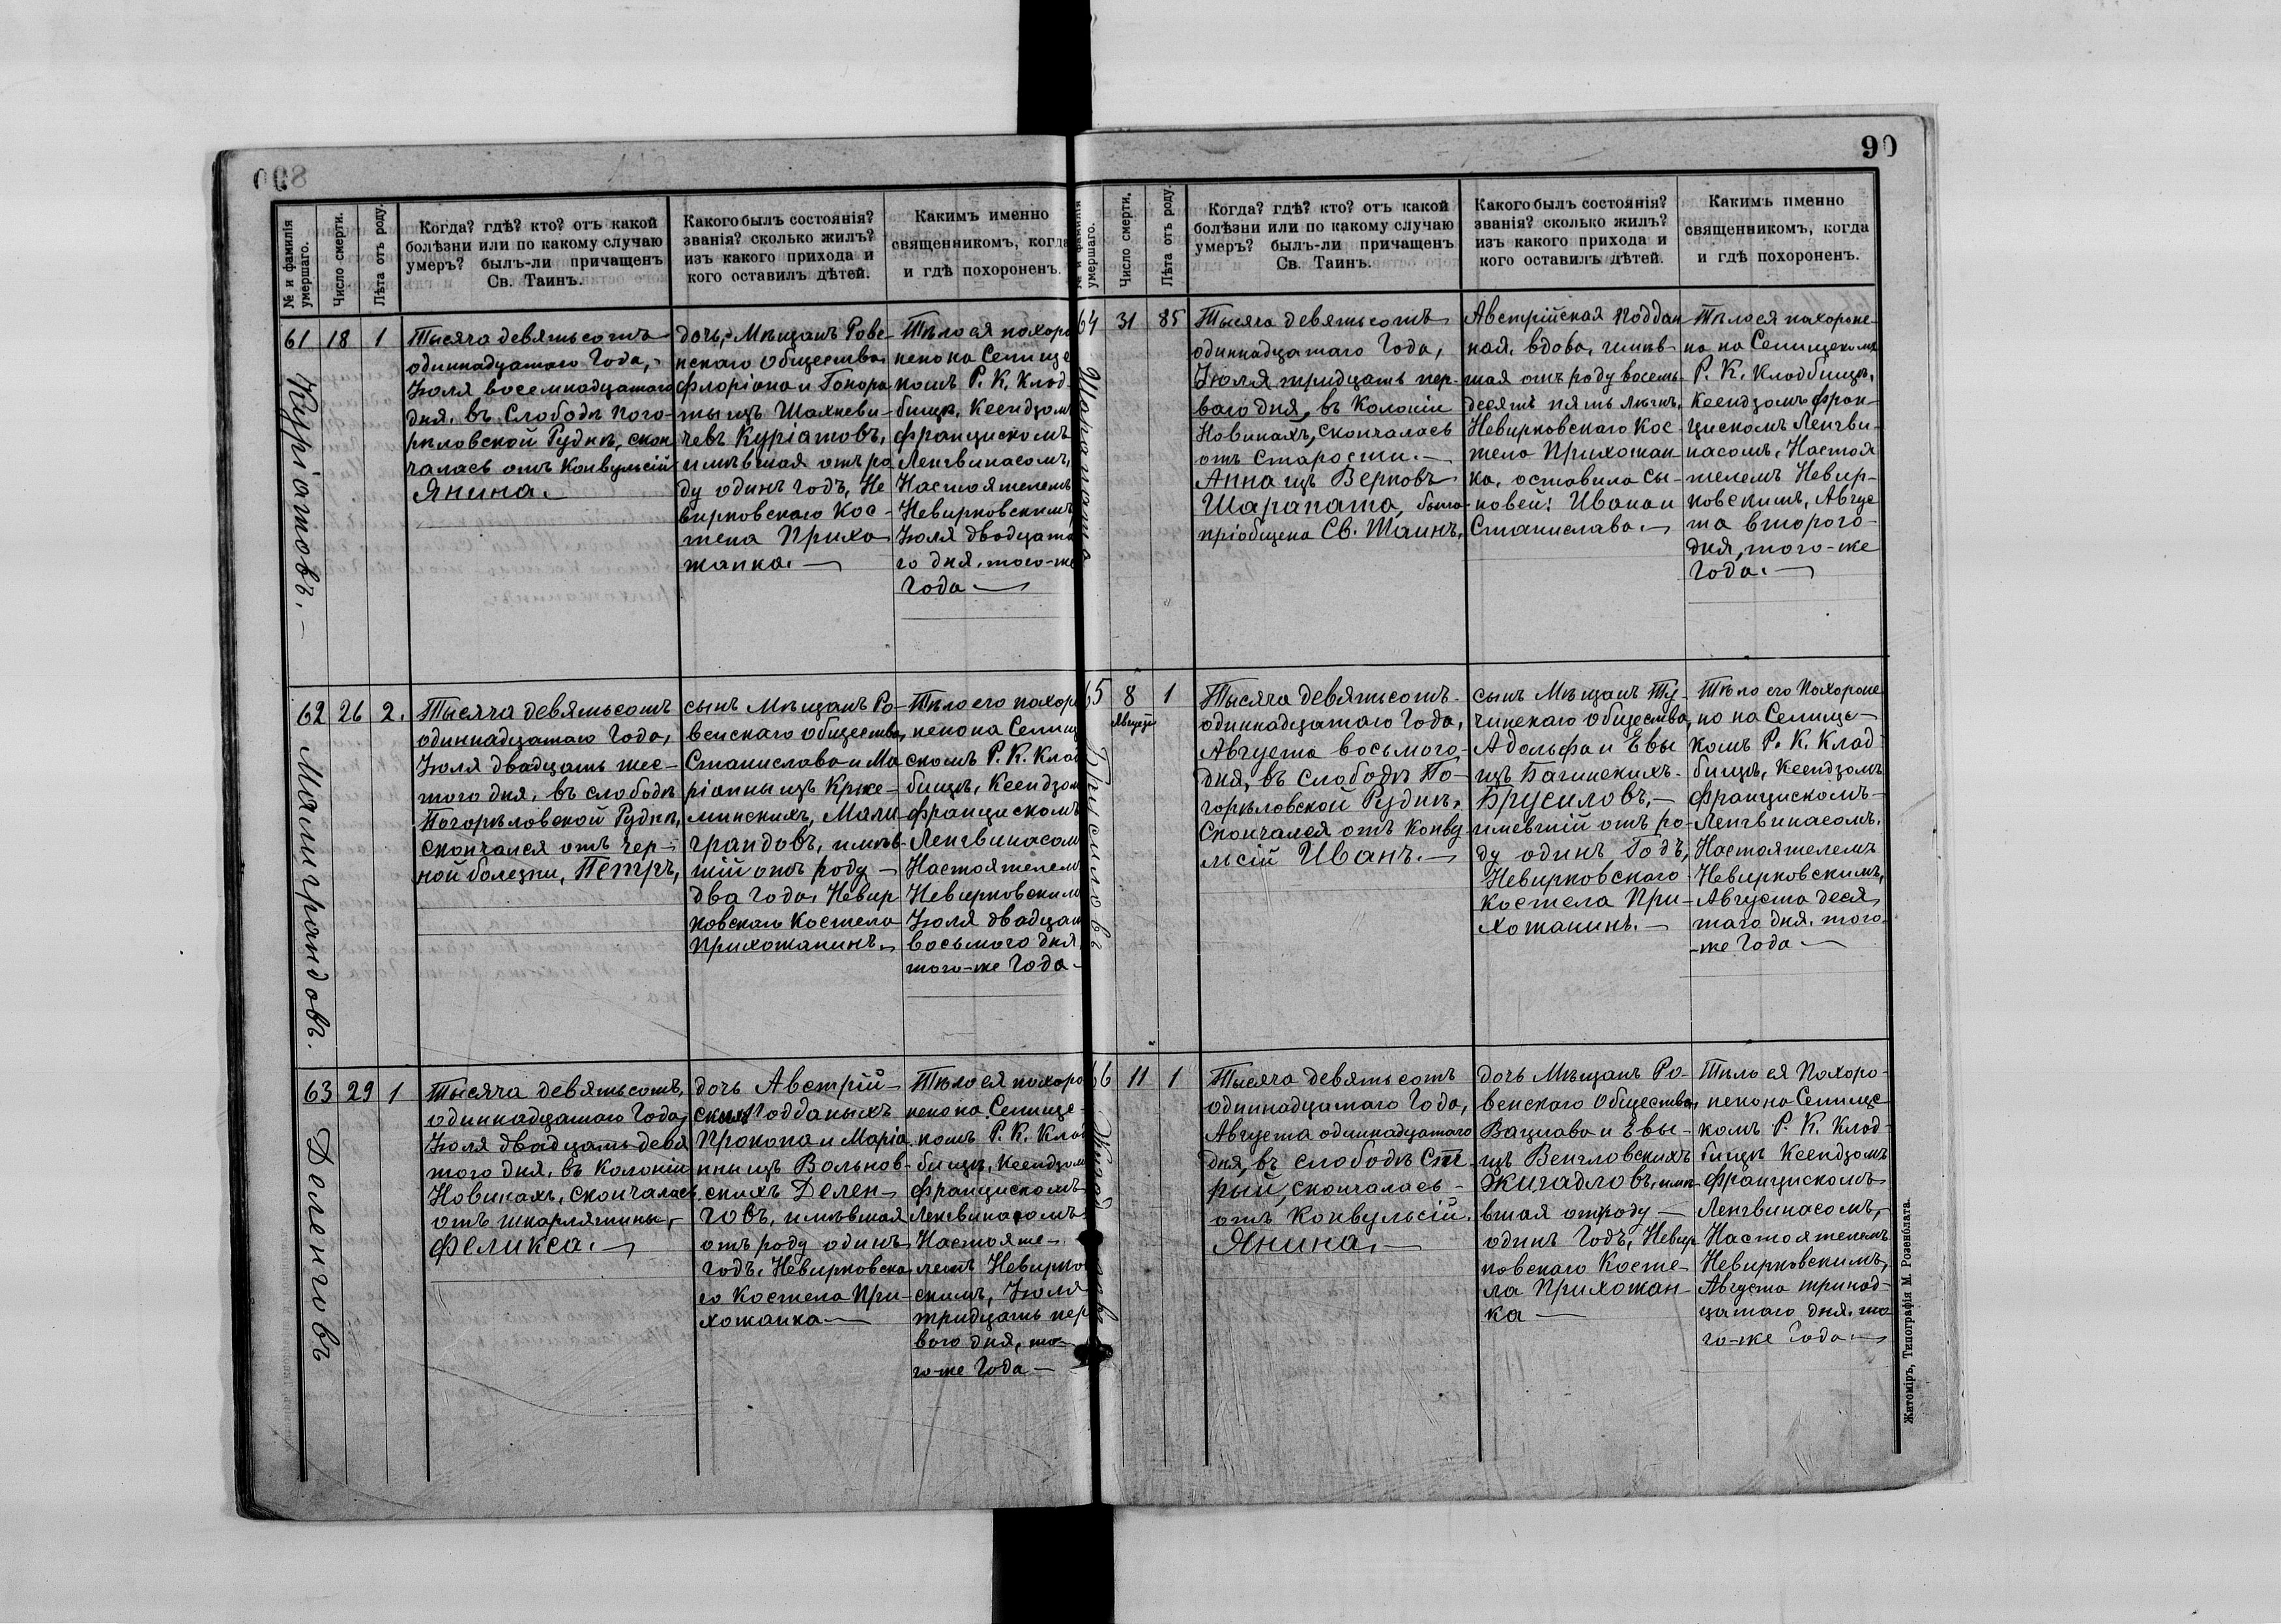 90
№ и фамилія умершаго.
Число смерти.
Лѣта отъ роду.
Когда? гдѣ? кто? отъ какой
болѣзни или по какому случаю
умеръ? былъ-ли причащенъ
Св. Таинъ.
Какого былъ состоянія?
званія? сколько жилъ?
изъ какого прихода и
кого оставилъ дѣтей.
Какимъ именно
священникомъ, когда
и гдѣ похороненъ.
61
Куріатовъ.
18
1
Тысяча девятьсотъ
одиннадцатаго Года,
Іюля восемнадцатаго
дня, въ Слободѣ Пого-
рѣловской Рудкѣ, скон
чалась отъ Конвульсій
Янина.
дочь, Мѣщанъ Рове-
нскаго Общества,
Флоріана и Гонора
ты изъ Шахневи-
чевъ Куріатовъ,
имѣвшая отъ ро
ду одинъ годъ, Не
вирковскаго Кос-
тела Прихо
жанка.
Тѣло ея похоро
нено на Селище
комъ Р. К. Клад-
бищѣ, Ксендзом
Францискомъ
Ленгвинасомъ,
Настоятелемъ
Невирковскимъ
Іюля двадцата
го дня, того-же
Года
62
Малиграндовъ.
26
2.
Тысяча девятьсотъ
одиннадцатаго Года,
Іюля двадцать шес-
того дня, въ слободѣ
Погорѣловской Рудкѣ,
скончался отъ чер-
ной болезни, Петръ,
сынъ Мѣщанъ Ро-
венскаго Общества,
Станислава и Ма
ріанны изъ Крже-
минскихъ, Мали
грандовъ, имѣв-
шій отъ роду
два года, Невир
ковскаго Костела
Прихожанинъ.
Тѣло его похоро
нено на Селищ
скомъ Р. К. Клад
бищѣ, Ксендзом
Францискомъ
Ленгвинасом
Настоятелем
Невирковским
Іюля двадцат
восьмого дня
того-же Года
63
Деленговъ
29
1
Тысяча девятьсотъ,
одиннадцатаго Года,
Іюля двадцать девя
того дня, въ Колоніи
Новинахъ, скончалась
отъ шкарлятины,
Феликса.
дочь Австрій-
скихъ Подданыхъ
Прокопа и Маріа
нны изъ Вольнов-
скихъ Делен-
говъ, имѣвшая
отъ роду одинъ
годъ, Невирковска
го Костела При-
хожанка
Тѣло ея похоро
нено на Селище-
комъ Р. К. Клад
бищѣ, Ксендзом
Францискомъ
Ленгвинасомъ
Настояте-
лемъ Невирко
скимъ, Іюля
тридцать пер
вого дня, то-
го-же Года
№ и фамилія умершаго.
Число смерти.
Лѣта отъ роду.
Когда? гдѣ? кто? отъ какой
болѣзни или по какому случаю
умеръ? былъ-ли причащенъ
Св. Таинъ.
Какого былъ состоянія?
званія? сколько жилъ?
изъ какого прихода и
кого оставилъ дѣтей.
Какимъ именно
священникомъ, когда
и гдѣ похороненъ.
64
Шарапата
31
85
Тысяча девятьсотъ
одиннадцатаго Года,
Іюля тридцать пер-
ваго дня, въ Колоніи
Новинахъ, скончалась
отъ старости.
Анна изъ Верковъ
Шарапата, была
пріобщена Св. Таинъ,
Австрійская Поддан
ная, вдова, имѣв-
шая отъ роду восемь
десятъ пять лѣтъ,
Невирковскаго Кос-
тела Прихожан
ка, оставила сы-
новей: Ивана и
Станислава.
Тѣло ея похороне-
но на Селищскомъ
Р. К. Кладбищѣ,
Ксендзомъ Фран-
цискомъ Ленгви-
насомъ, Настоя
телемъ Невир-
ковскимъ, Авгус
та второго
дня, того-же
Года.
65
Брусиловъ
8
Август
1
Тысяча девятьсотъ
одиннадцатаго Года,
Августа восьмого
дня, въ слободѣ По-
горѣловской Рудкѣ,
Скончался отъ Конву
льсій Иванъ.
сынъ Мѣщанъ Ту-
чинскаго Общества,
Адольфа и Евы
изъ Багинскихъ
Брусиловъ,
имевшій отъ ро-
ду одинъ Годъ,
Невирковскаго
Костела При-
хожанинъ.
Тѣло его Похороне
но на Селище
комъ Р. К. Клад
бищѣ, Ксендзомъ
Францискомъ
Ленгвинасомъ,
Настоятелемъ
Невирковскимъ,
Августа деся
таго дня, того
-же Года
66
11
1
Тысяча девятьсотъ
одиннадцатаго Года,
Августа одиннадцатаго
дня, въ слободѣ Ста
рый, скончалась
отъ Конвульсій
Янина,
дочь Мѣщанъ Ро-
венскаго Общества,
Вацлава и Евы
изъ Венгловскихъ
Жигадловъ, имѣ-
вшая отроду
одинъ Годъ, Невир
ковскаго Косте-
ла Прихожан-
ка
Тѣло ея Похоро-
нено на Селище
комъ Р. К. Клад-
бищѣ Ксендзомъ
Францискомъ
Ленгвинасомъ,
Настоятелемъ
Невирковскимъ,
Августа тринад-
цатаго дня, то
го-же Года
Житоміръ, Типографія М. Розенблата.